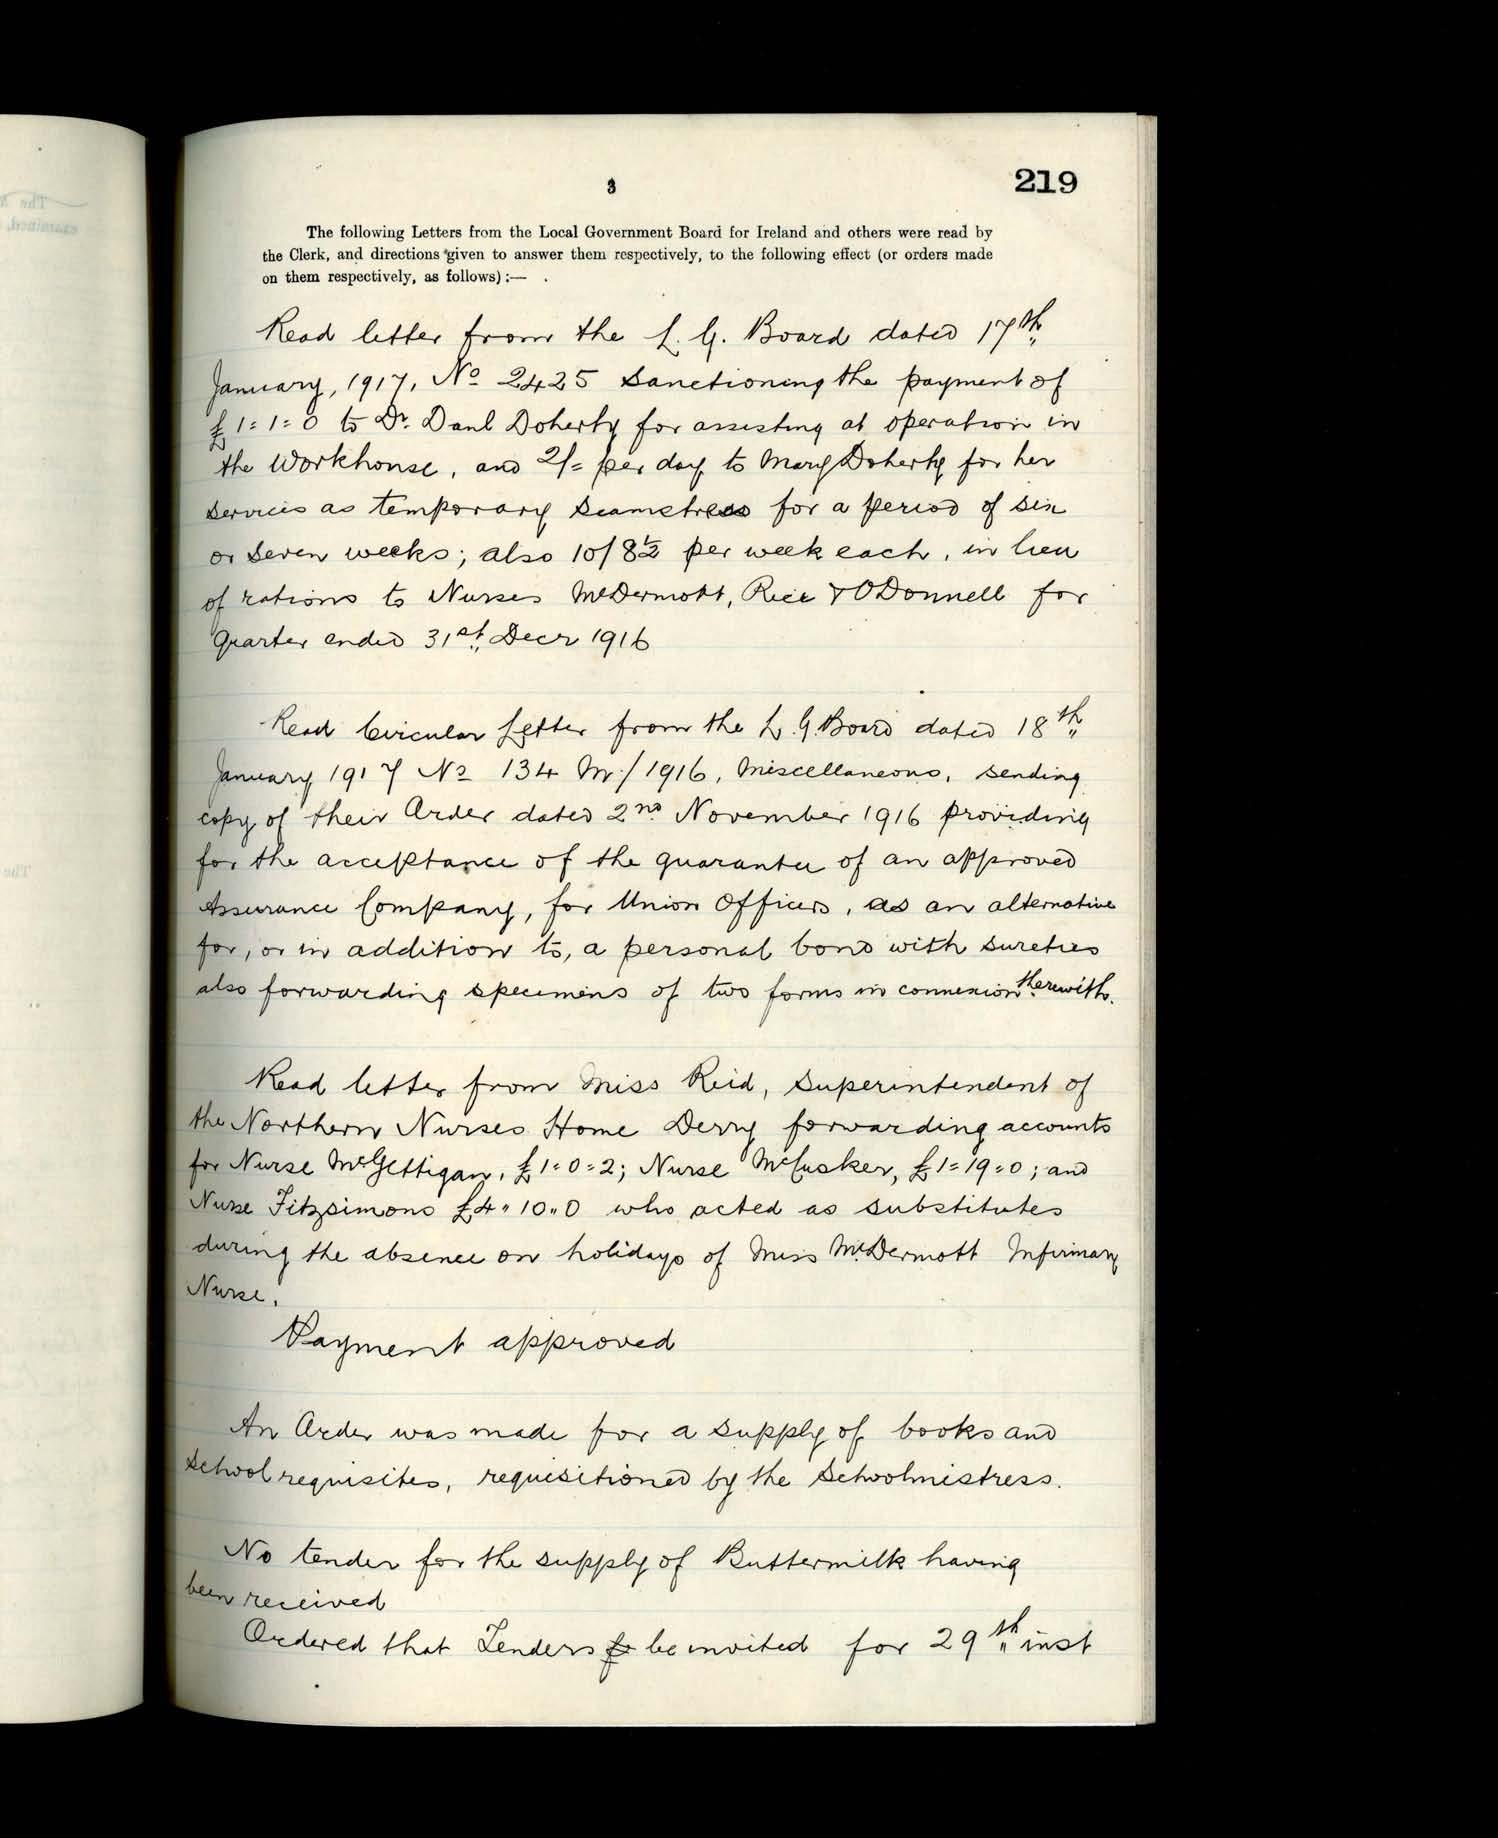 3
219
The following Letters from the Local Government Board for Ireland and others were read by
the Clerk, and directions given to answer them respectively, to the following effect (or orders made
on them respectively, as follows):—
Read letter from the L. G. Board dated 17th
January, 1917, No 2425 Sanctioning the payment of
£1=1=0 to Dr. Danl Doherty for assisting at operation in
the Workhouse, and 2/= per day to Mary Doherty for her
services as temporary seamstress for a period of six
or seven weeks; also 10/8½ per week each, in lieu
of rations to Nurses McDermott, Rice & O'Donnell for
quarter ended 31st Decr 1916
Read Circular Letter from the L. G. Board dated 18th
January 1917 No 134 M/1916, Miscellaneous, sending
copy of their Order dated 2nd November 1916 providing
for the acceptance of the guarantee of an approved
Assurance Company, for Union Officers, as an alternative
for, or in addition to, a personal bond with sureties
also forwarding specimens of two forms in connexion therewith.
Read letter from Miss Reid, Superintendent of
the Northern Nurses Home Derry forwarding accounts
for Nurse McGettigan, £1=0=2; Nurse McCusker, £1=19=0; and
Nurse Fitzsimons £4"10"0 who acted as substitutes
during the absence on holidays of Miss McDermott Infirmary
Nurse.
Payment approved
An Order was made for a supply of books and
school requisites, requisitioned by the Schoolmistress.
No tender for the supply of Buttermilk having
been received
Ordered that Tenders be invited for 29th inst
The